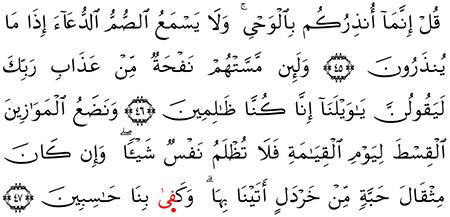 قُلْ إِنَّمَآ أُنذِرُكُم بِٱلْوَحْىِ ۚ وَلَا يَسْمَعُ ٱلصُّمُّ ٱلدُّعَآءَ إِذَا مَا
يُنذَرُونَ ﴿٤٥﴾ وَلَئِن مَّسَّتْهُمْ نَفْحَةٌ مِّنْ عَذَابِ رَبِّكَ
لَيَقُولُنَّ يَـٰوَيْلَنَآ إِنَّا كُنَّا ظَـٰلِمِينَ ﴿٤٦﴾ وَنَضَعُ ٱلْمَوَٰزِينَ
ٱلْقِسْطَ لِيَوْمِ ٱلْقِيَـٰمَةِ فَلَا تُظْلَمُ نَفْسٌ شَيْـًٔا ۖ وَإِن كَانَ
مِثْقَالَ حَبَّةٍ مِّنْ خَرْدَلٍ أَتَيْنَا بِهَا ۗ وَكَفِىٰ بِنَا حَـٰسِبِينَ ﴿٤٧﴾